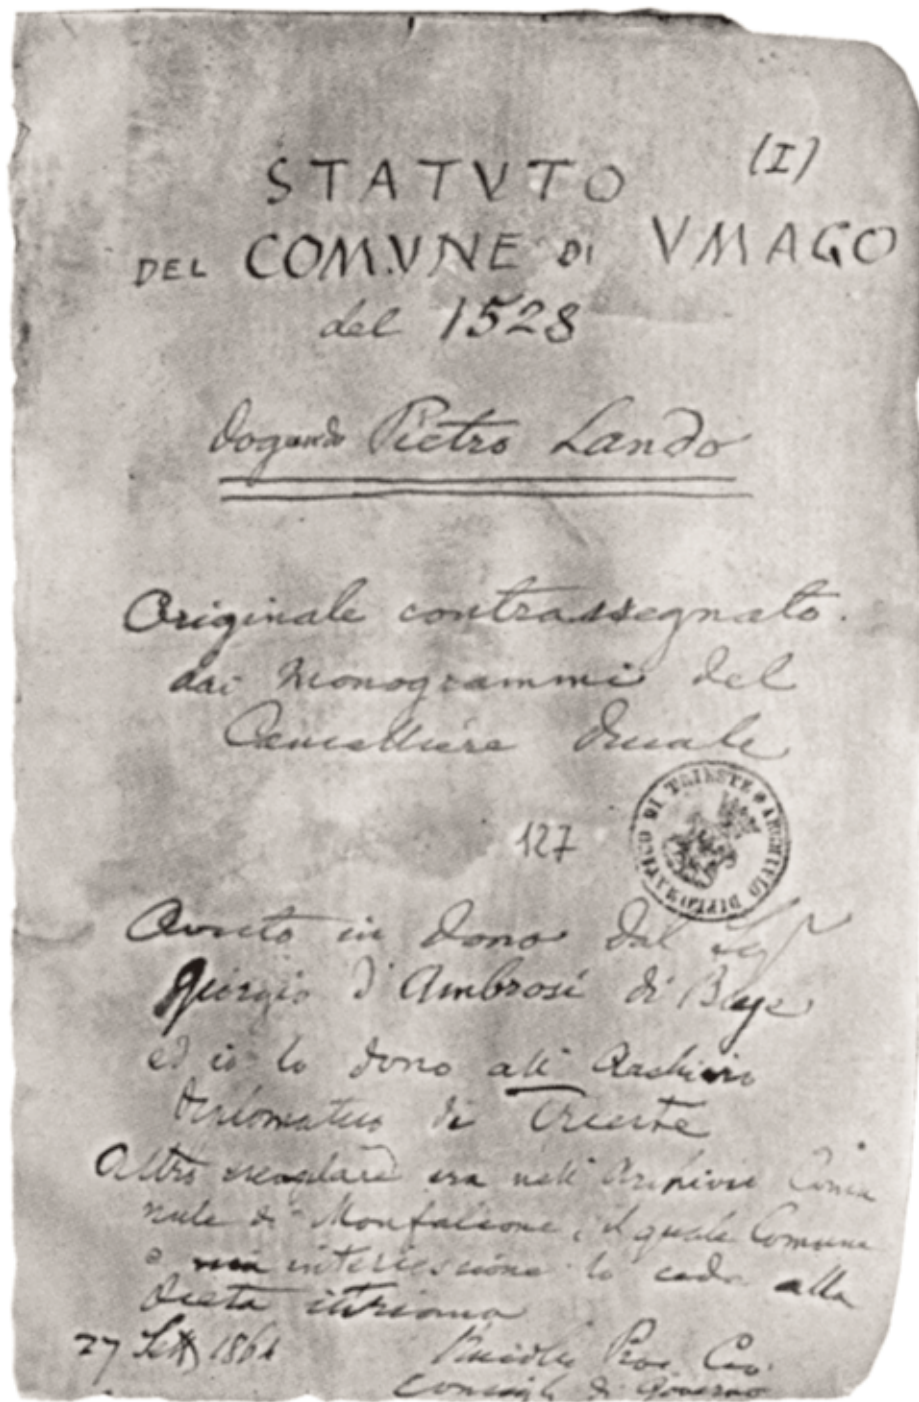 (I)
STATVTO
DEL COMVNE DI VMAGO
del 1528
dogando Pietro Lando
Originale contrassegnato.
dai Monogrammi del
Cancelliere Ducale
127
ARCHIVIO DIPLOMATICO DI TRIESTE
Avuto in dono dal Sigr
Giorgio d'Ambrosi di Buje
ed io lo dono all'
Diplomatico di Trieste
Altro esemplare era nell' Archivio Comu
nale di Monfalcone, il quale Comune
a mia intercessione lo cedu alla
Dieta istriana
27 Sett 1861
Consigl di Governo